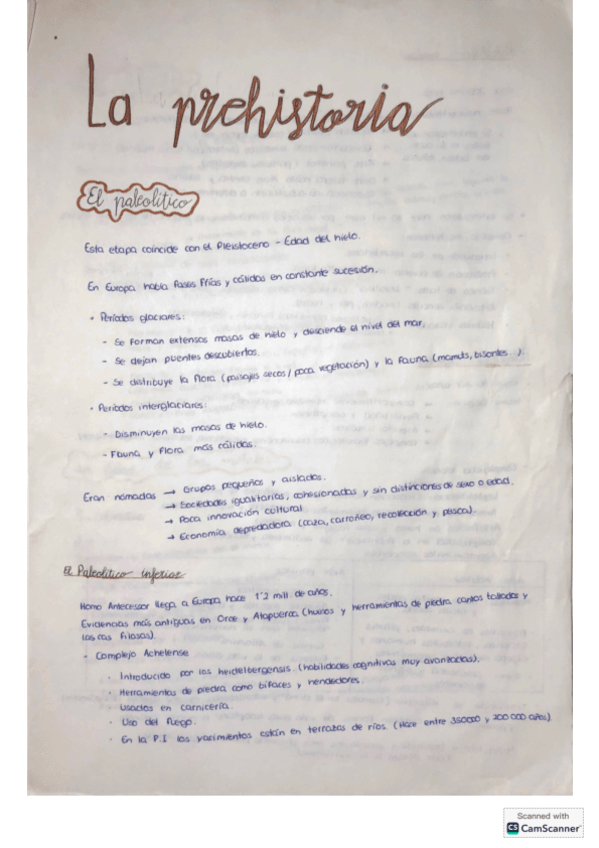 La prehistoria
El paleolítico
Esta etapa coincide con el Pleistoceno - Edad del hielo.
En Europa había fases frías y cálidas en constante sucesión.
• Períodos glaciares:
- Se forman extensas masas de hielo y desciende el nivel del mar.
- Se dejan puentes descubiertos.
- Se distribuye la flora (paisajes secos / poca vegetación) y la fauna (mamuts, bisontes...).
• Períodos interglaciares:
- Disminuyen las masas de hielo.
- Fauna y flora más cálidas.
Eran nómadas → Grupos pequeños y aislados.
→ Sociedades igualitarias, cohesionadas y sin distinciones de sexo o edad.
→ Poca innovación cultural.
→ Economía depredadora (caza, carroñeo, recolección y pesca).
El Paleolítico inferior
Homo Antecessor llega a Europa hace 1'2 mill. de años.
Evidencias más antiguas en Orce y Atapuerca (huesos y herramientas de piedra cantos tallados y
lascas filosas).
- Complejo Achelense
· Introducido por los heidelbergensis. (habilidades cognitivas muy avanzadas).
· Herramientas de piedra como bifaces y hendedores.
· Usados en carnicería
· Uso del fuego.
· En la P.I los yacimientos están en terrazas de ríos. (Hace entre 350000 y 200 000 años)
Scanned with
CS CamScanner